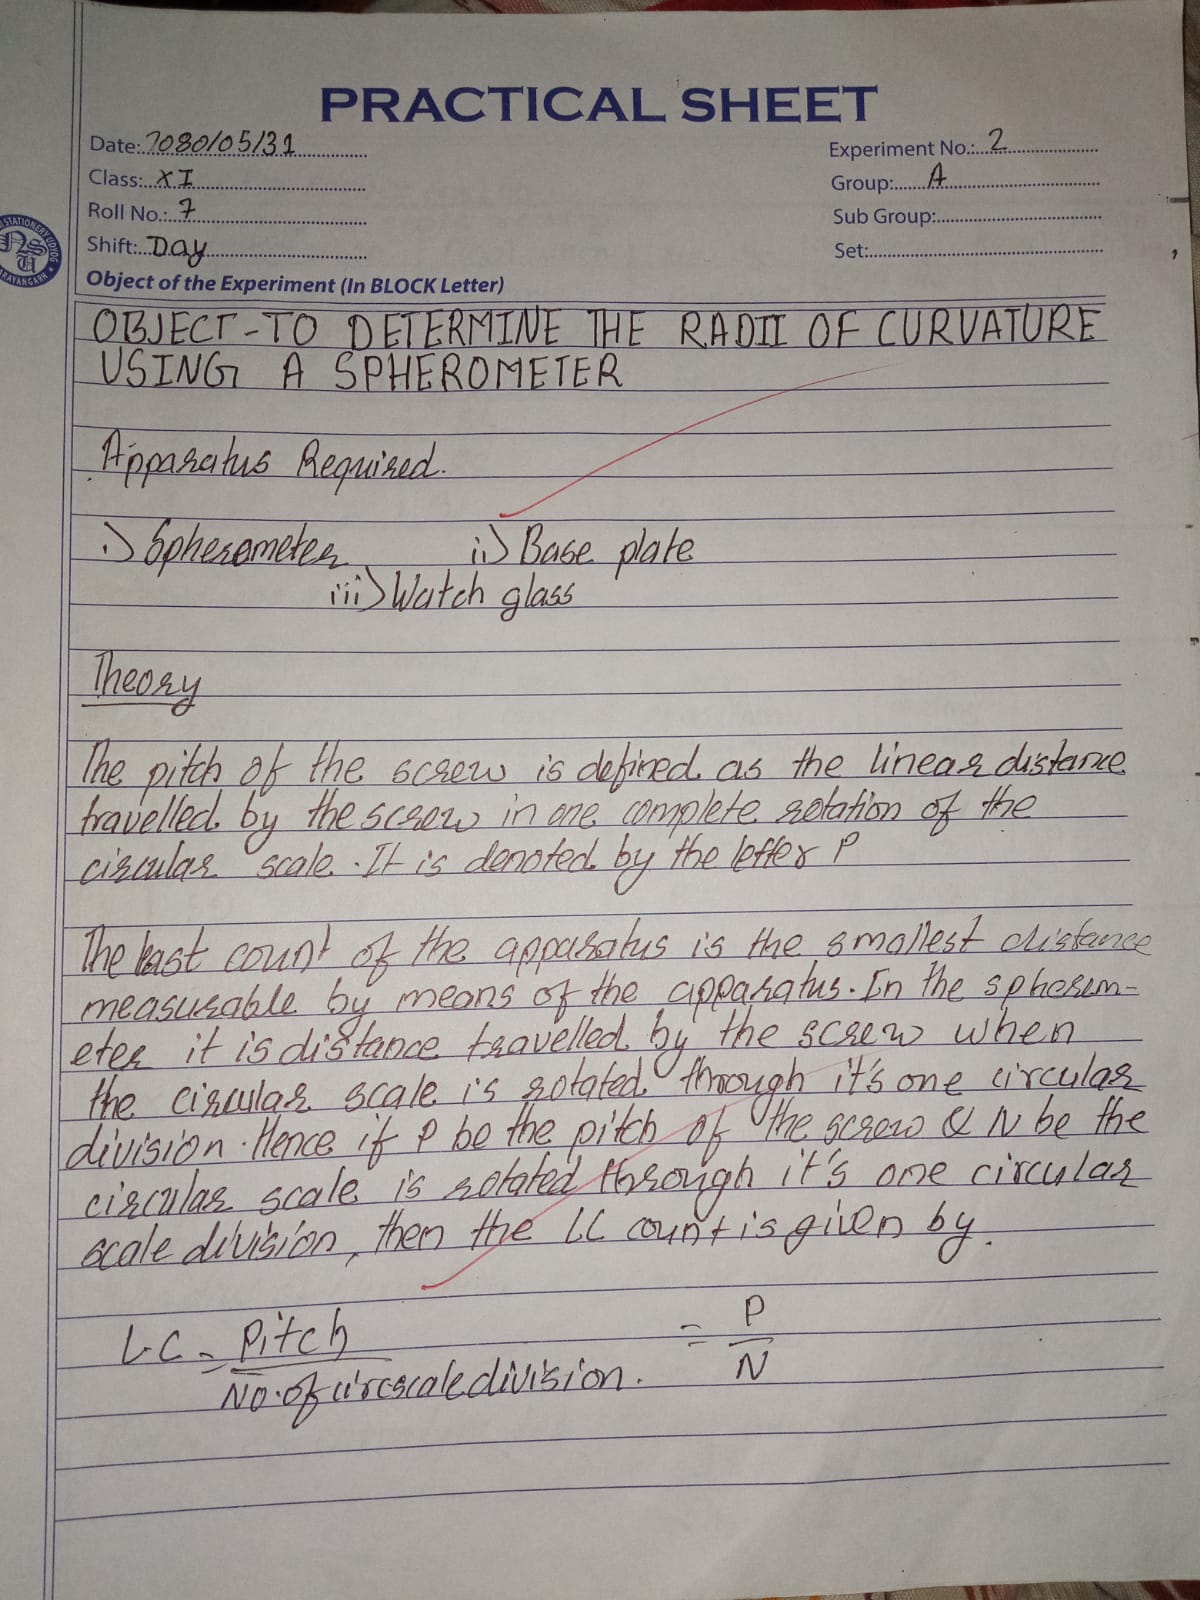 PRACTICAL SHEET
Date: 2080/05/31
Experiment No.: 2
Class: XI
Group: A
Roll No.: 7
Sub Group:
Shift: Day
Set:
Object of the Experiment (In BLOCK Letter)
OBJECT - TO DETERMINE THE RADII OF CURVATURE
USING A SPHEROMETER
Apparatus Required.
i) Spherometer ii) Base plate
iii) Watch glass
Theory
The pitch of the screw is defined as the linear distance
travelled by the screw in one complete rotation of the
circular scale. It is denoted by the letter P
The least count of the apparatus is the smallest distance
measurable by means of the apparatus. In the spherom-
eter it is distance travelled by the screw when
the circular scale is rotated through it's one circular
division. Hence if P be the pitch of the screw & N be the
circular scale is rotated through it's one circular
scale division, then the LC count is given by.
L.C = Pitch = P
No. of circscale division. N